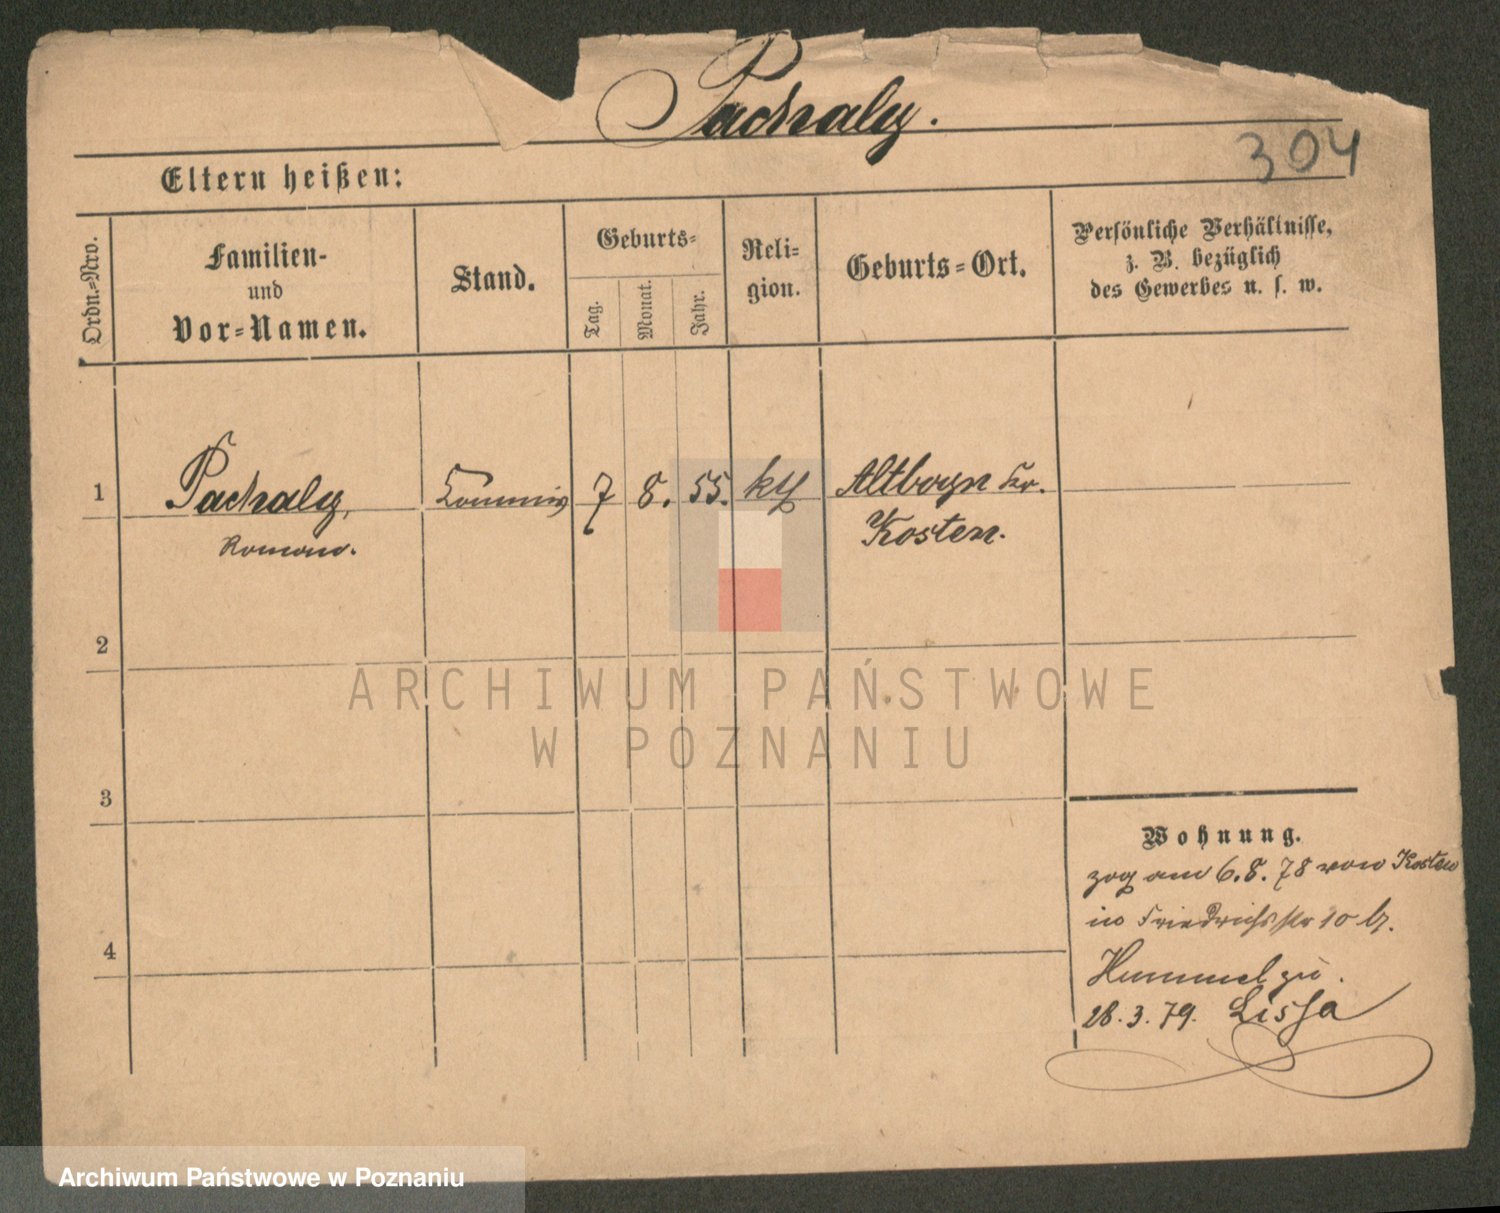 Pachaly.
304
Eltern heißen:
Ordn.-Nro.
Familien-
und
Vor-Namen.
Stand.
Geburts-
Tag.
Monat.
Jahr.
Reli-
gion.
Geburts-Ort.
Persönliche Verhältnisse,
z. B. bezüglich
des Gewerbes u. s. w.
1
Pachaly,
Roman.
Commis
7
8.
55.
kth
Altboyn Kr.
Kosten.
2
3
4
Wohnung.
zog am 6.8.78 von Kosten
in Friedrichsstr 10 b.
Hummel zu.
28.3.79. Lissa
ARCHIWUM PAŃSTWOWE
W POZNANIU
Archiwum Państwowe w Poznaniu